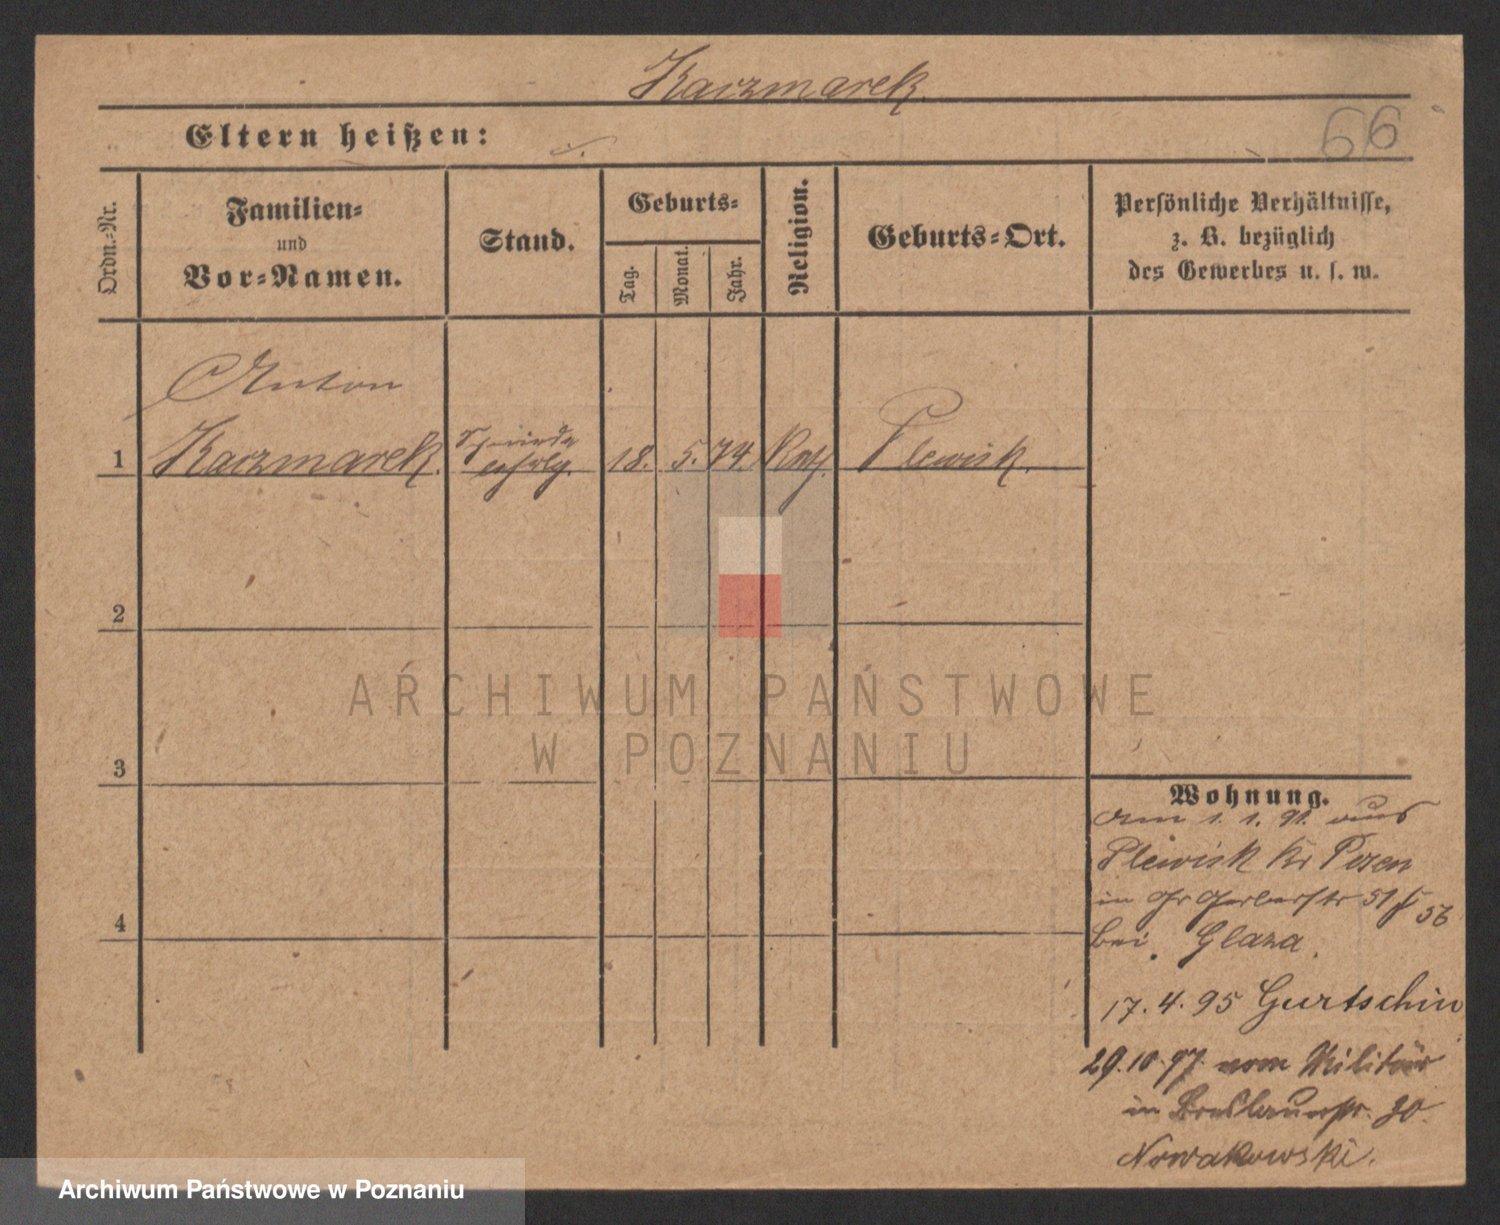 Kaczmarek.
66
Eltern heißen:
Ordn.-Nr.
Familien-
und
Vor-Namen.
Stand.
Geburts-
Tag.
Monat.
Jahr.
Religion.
Geburts-Ort.
Persönliche Verhältnisse,
z. B. bezüglich
des Gewerbes u. s. w.
Anton
1 Kaczmarek. 18. 5. 74. Plewisk.
2
3
4
Wohnung.
Am 1. 1. 91. aus
Plewisk Kr Posen
in Gr Gerberstr 51
56
bei Glaza.
17. 4. 95 Gurtschin
29. 10. 97 vom Militär
in Breslauerstr. 30.
Nowakowski.
ARCHIWUM PAŃSTWOWE
W POZNANIU
Archiwum Państwowe w Poznaniu